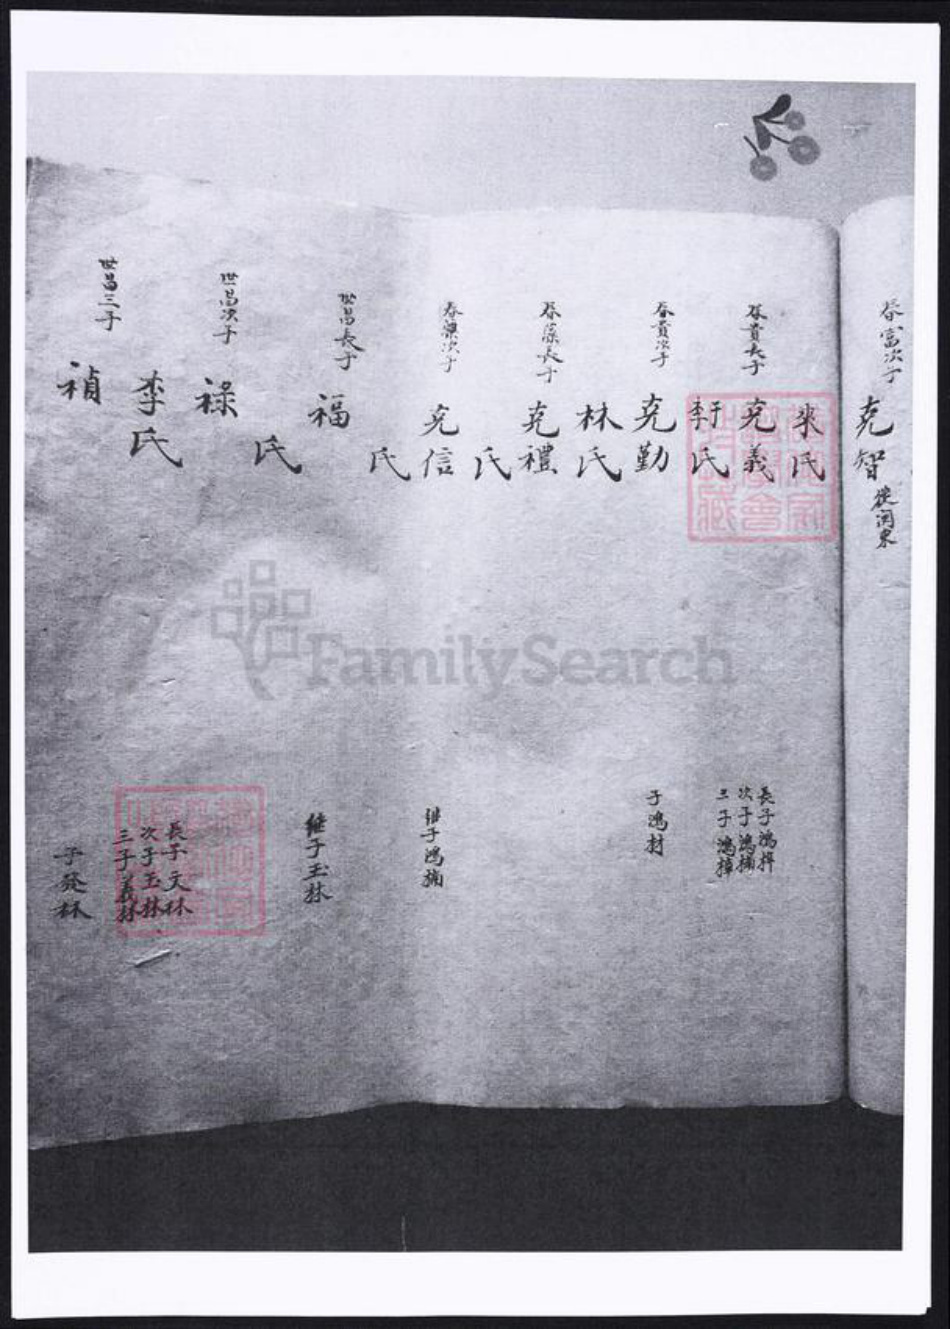 春富次子
克智
從関東
来氏
春貴長子
克義
于氏
李氏
長子鴻梓
次子鴻楠
三子鴻樟
春貴次子
克勤
林氏
子鴻材
春藻長子
克禮
氏
春藻次子
克信
氏
継子鴻楠
世昌長子
福
氏
継子玉林
世昌次子
祿
李氏
長子文林
次子玉林
三子義林
世昌三子
禎
子發林
FamilySearch